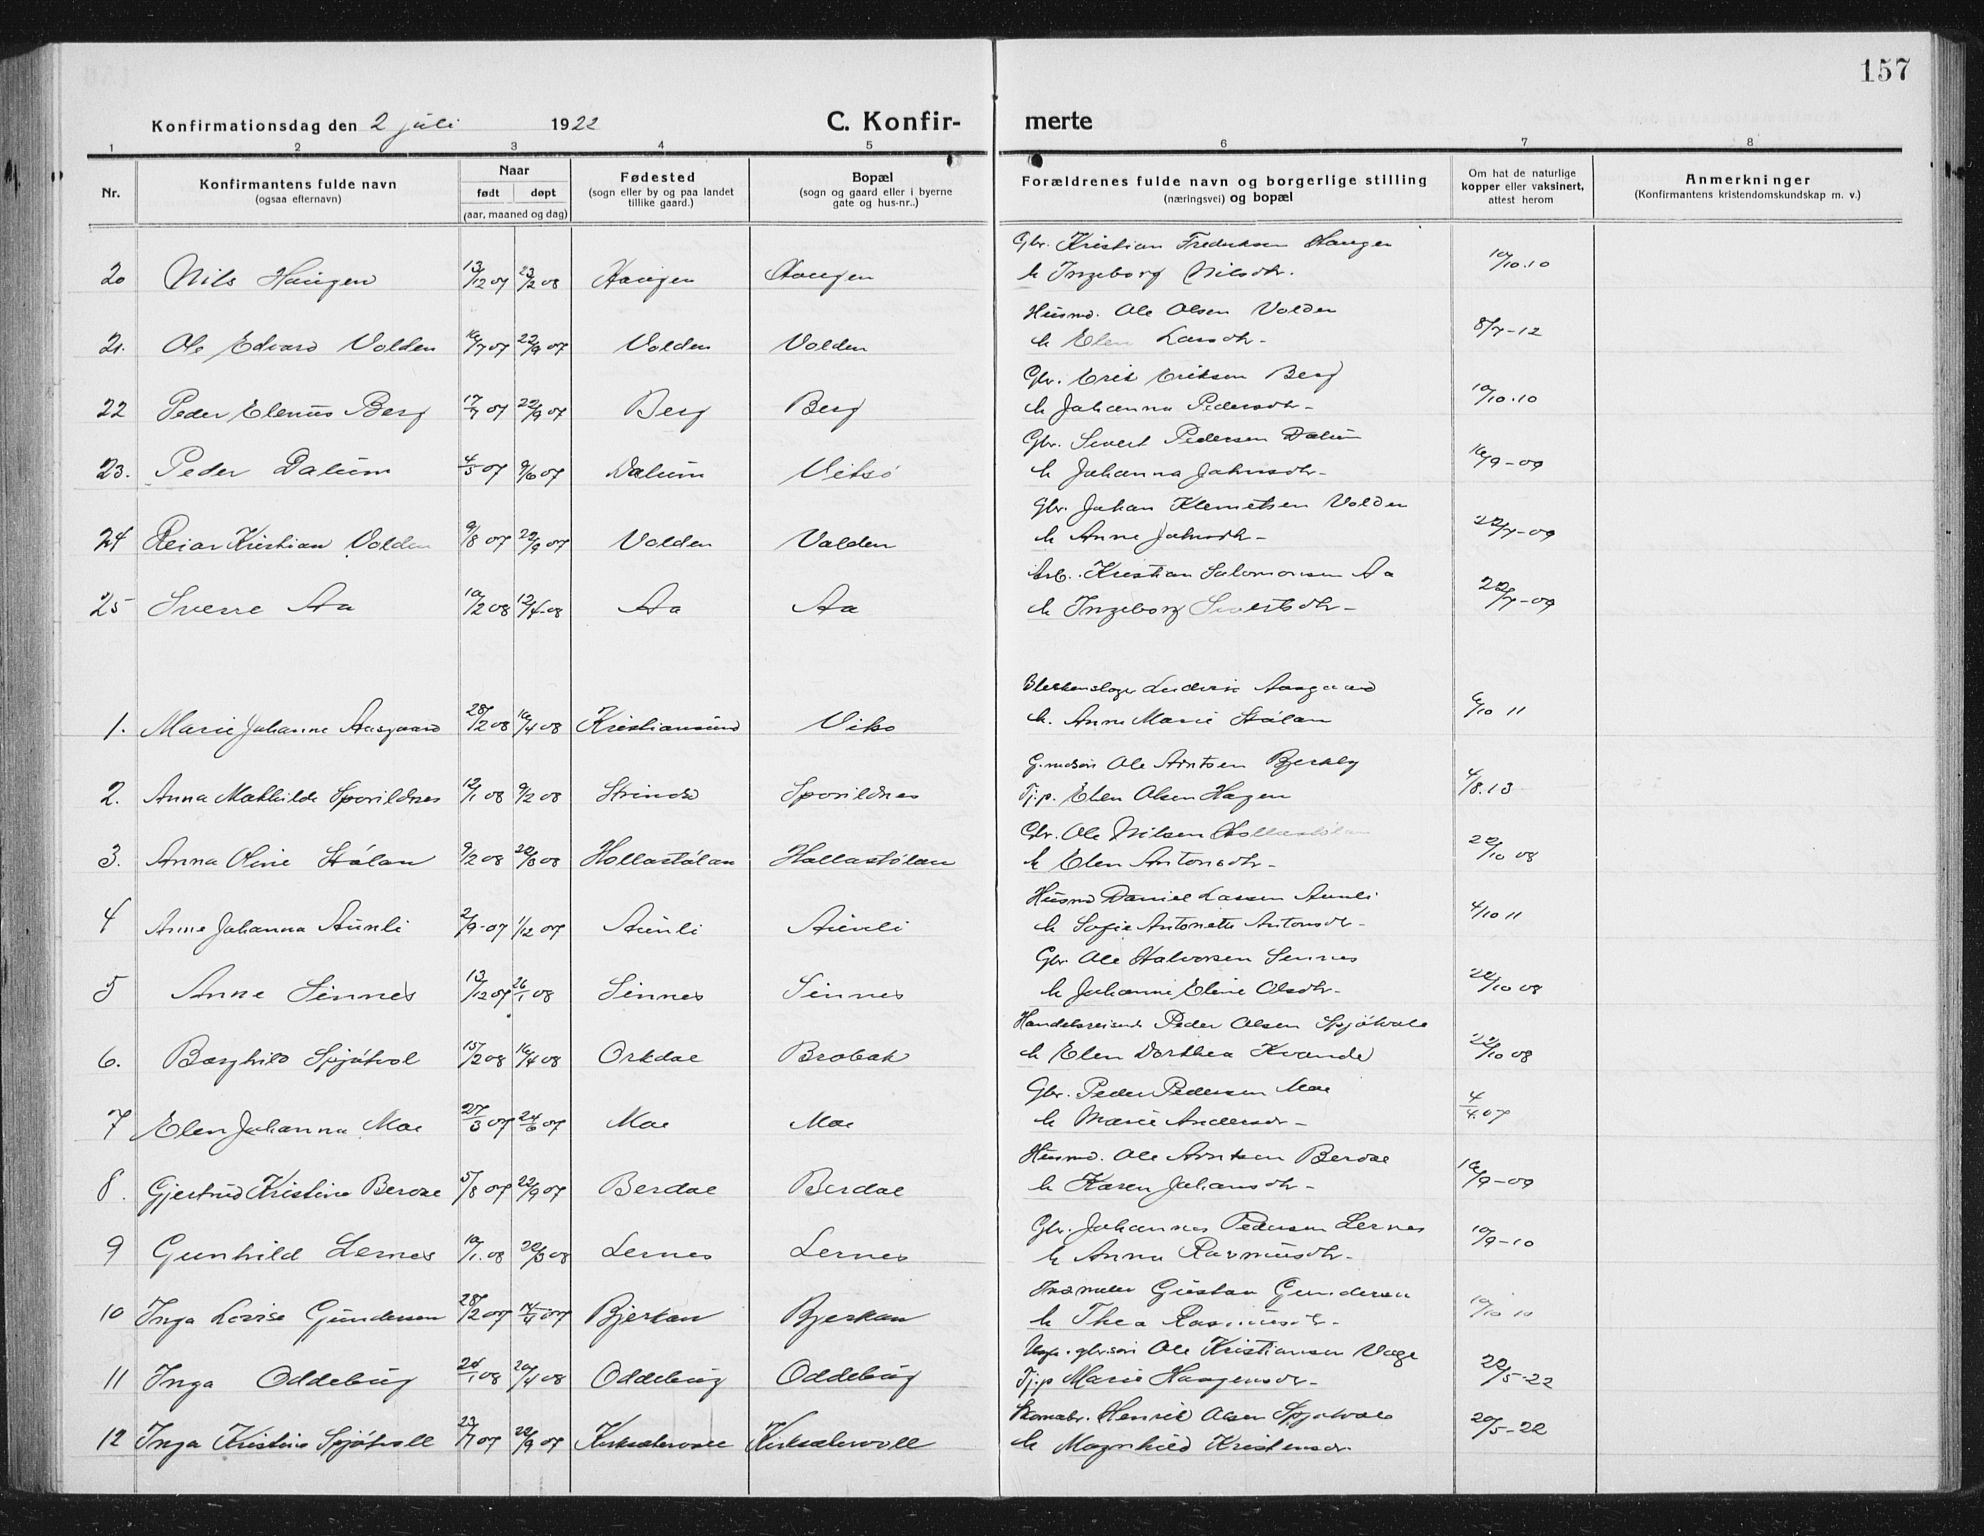 157
Konfirmationsdag den 2 juli 1922
C. Konfir-
merte
1 2 3 4 5 6 7 8
Nr.
Konfirmantens fulde navn
(ogsaa efternavn)
Naar
født døpt
(aar, maaned og dag)
Fødested
(sogn eller by og paa landet
tillike gaard.)
Bopæl
(sogn og gaard eller i byerne
gate og hus-nr..)
Forældrenes fulde navn og borgerlige stilling
(næringsvei) og bopæl
Om hat de naturlige
kopper eller vaksinert,
attest herom
Anmerkninger
(Konfirmantens kristendomskundskap m. v.)
Gbr. Kristian Fredriksen Haugen
20 Nils Haugen 13/12 07 23/2 08 Haugen Haugen h Ingeborg Nilsdtr. 10/10.10
Husmd. Ole Olsen Volden
21. Ole Edvard Volden 16/7 07 22/9 07 Volden Volden h Elen Larsdtr- 8/7-12
Gbr. Erik Eriksen Berg
22 Peder Elenus Berg 17/7 07 22/9 07 Berg Berg h Johanna Pedersdtr- 10/10.10
Gbr. Sivert Pedersen Dalum
23. Peder Dalum 4/5 07 9/6 07 Dalum Viksö h Johanna Johnsdtr- 16/9-09
Gbr. Johan Klemetsen Volden
24 Reiar Kristian Volden 9/8 07 22/9 07 Volden Volden h Anne Johnsdtr- 22/7-09
Arb. Kristian Salomonsen Aa
25 Sverre Aa 10/2 08 12/4-08 Aa Aa h Ingeborg Sivertsdtr- 22/7-09
Blikkenslager Ludvik Aasgaard
1. Marie Johanne Aasgaard 28/2 08 16/4 08 Kristiansund Vikso h. Anne Marie Stölan 6/10 11
G.mdsøn Ole Arntsen Bjerkly
2. Anna Mathilde Sporildnes 12/1 08 9/2 08 Strinda Sporildnes Tj.p. Elen Olsen Hagen 4/8.13
Gbr. Ole Nilsen Hollastølan
3. Anna Oline Stölan 9/2 08 22/3 08 Hollastölan Hollastölan h Elen Antonsdtr- 22/10 08
Husmd Daniel Larsen Aunli
4 Anne Johanna Aunli 2/9-07 1/12 07 Aunli Aunli h Sofie Antonette Antonsdr- 4/10 11
Gbr Ole Halvorsen Sinnes
5 Anne Sinnes 13/12 07 26/1 08 Sinnes Sinnes h Johanne Eline Olsdtr- 22/10 08
Handelsreisende Peder Olsen Spjötvold
6. Borghild Spjötvol 15/2 08 16/4 08 Orkdal Brobak h Elen Dorthea Kvande 22/10 08
Gbr. Peder Pedersen Moe
7 Elen Johanna Moe 27/3 07 24/6 07 Moe Moe h Marie Andersdr- 4/4.07
Husmd. Ole Arntsen Berdal
8. Gjertrud Kristine Berdal 5/8 07 22/9 07 Berdal Berdal h Karen Johansdtr- 16/9-09
Gbr. Johannes Pedersen Lernes
9 Gunhild Lernes 10/1.08 22/3 08 Lernes Lernes h Anna Rasmusdtr- 10/9-10
Gustav Gundersen
10 Inga Lovise Gundersen 28/2 07 14/4 07 Bjerkan Bjerkan h Thea Rasmusdtr- 10/10 10
Ungk. gbr.søn Ole Kristiansen Vage
11 Inga Oddebug 24/1 08 20/4 08 Oddebug Oddebug Tj.p Marie Haagensdr- 22/5-22
Skomakr. Henrik Olsen Spjötvold
12 Inga Kristine Spjötvoll 23/7 07 22/9 07 Kirksætervoll Kirksætervoll h Magnhild Kristensdr. 20/5-22